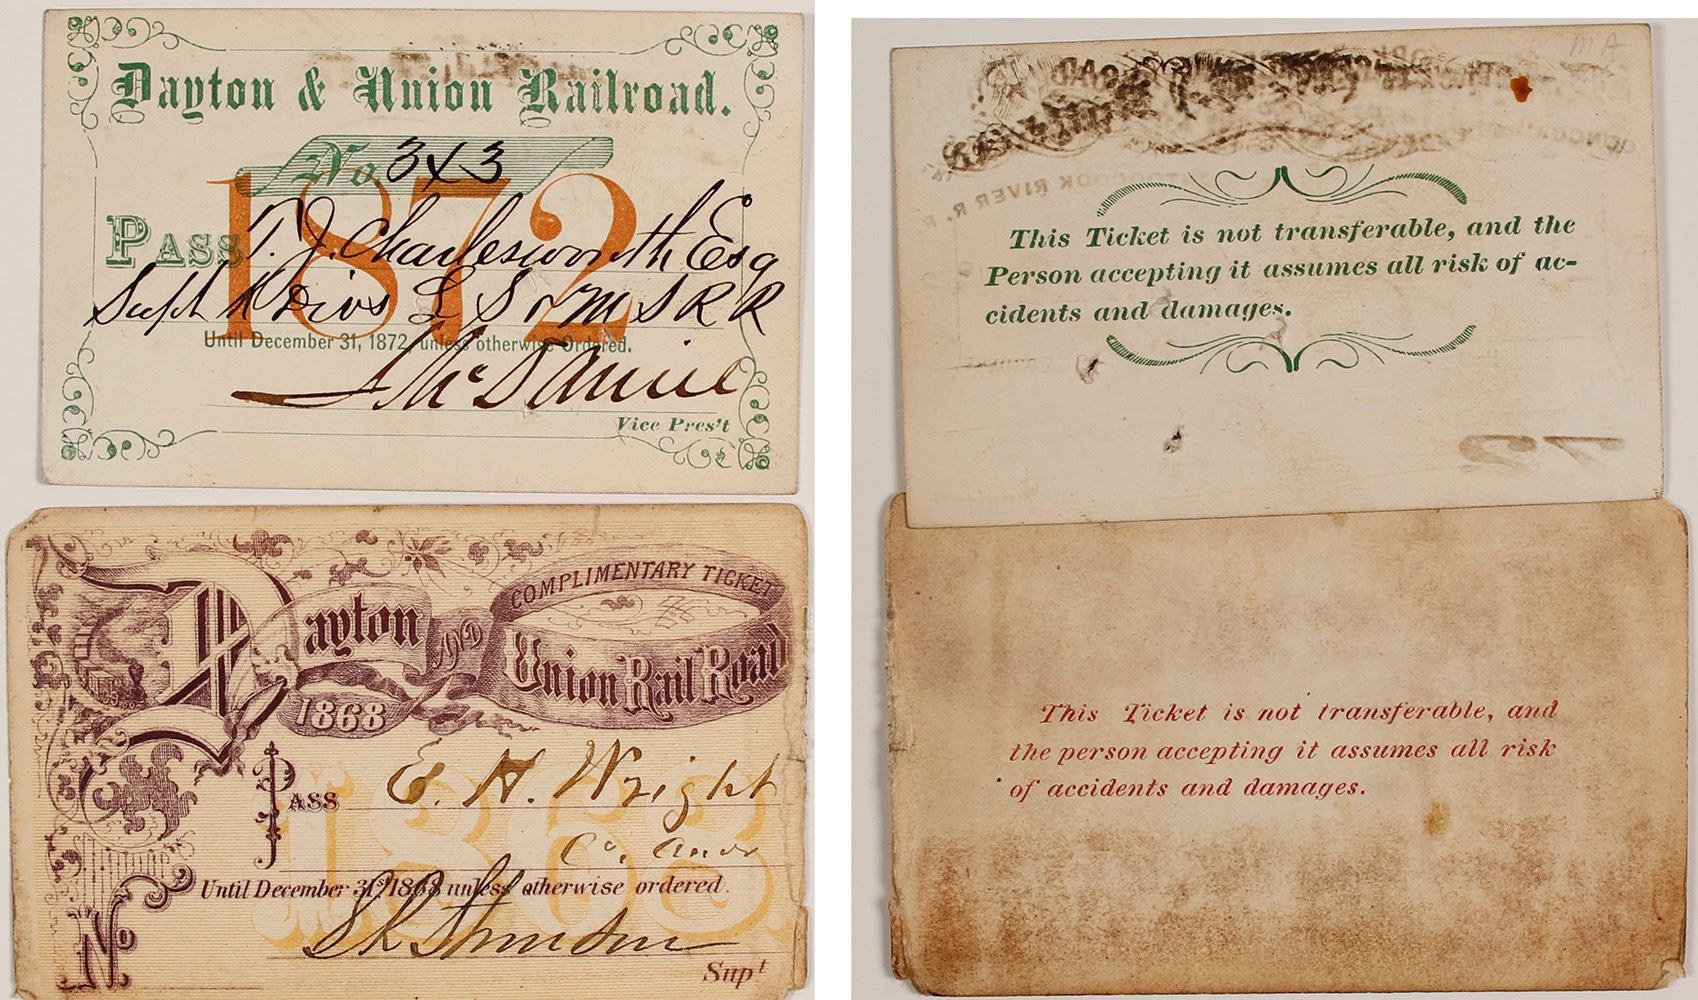 Dayton & Union Railroad.
No. 3x3
1872
PASS T. J. Charlesworth Esq
Supt K Divs L S & M S R R
Until December 31, 1872, unless otherwise Ordered.
Vice Pres't
COMPLIMENTARY TICKET
Dayton AND Union Rail Road
1868
PASS E. H. Wright
1868
Until December 31st 1868 unless otherwise ordered.
No
Supt
MA
ROAD
TOOCOOK RIVER R. R.
This Ticket is not transferable, and the
Person accepting it assumes all risk of ac-
cidents and damages.
72
This Ticket is not transferable, and
the person accepting it assumes all risk
of accidents and damages.